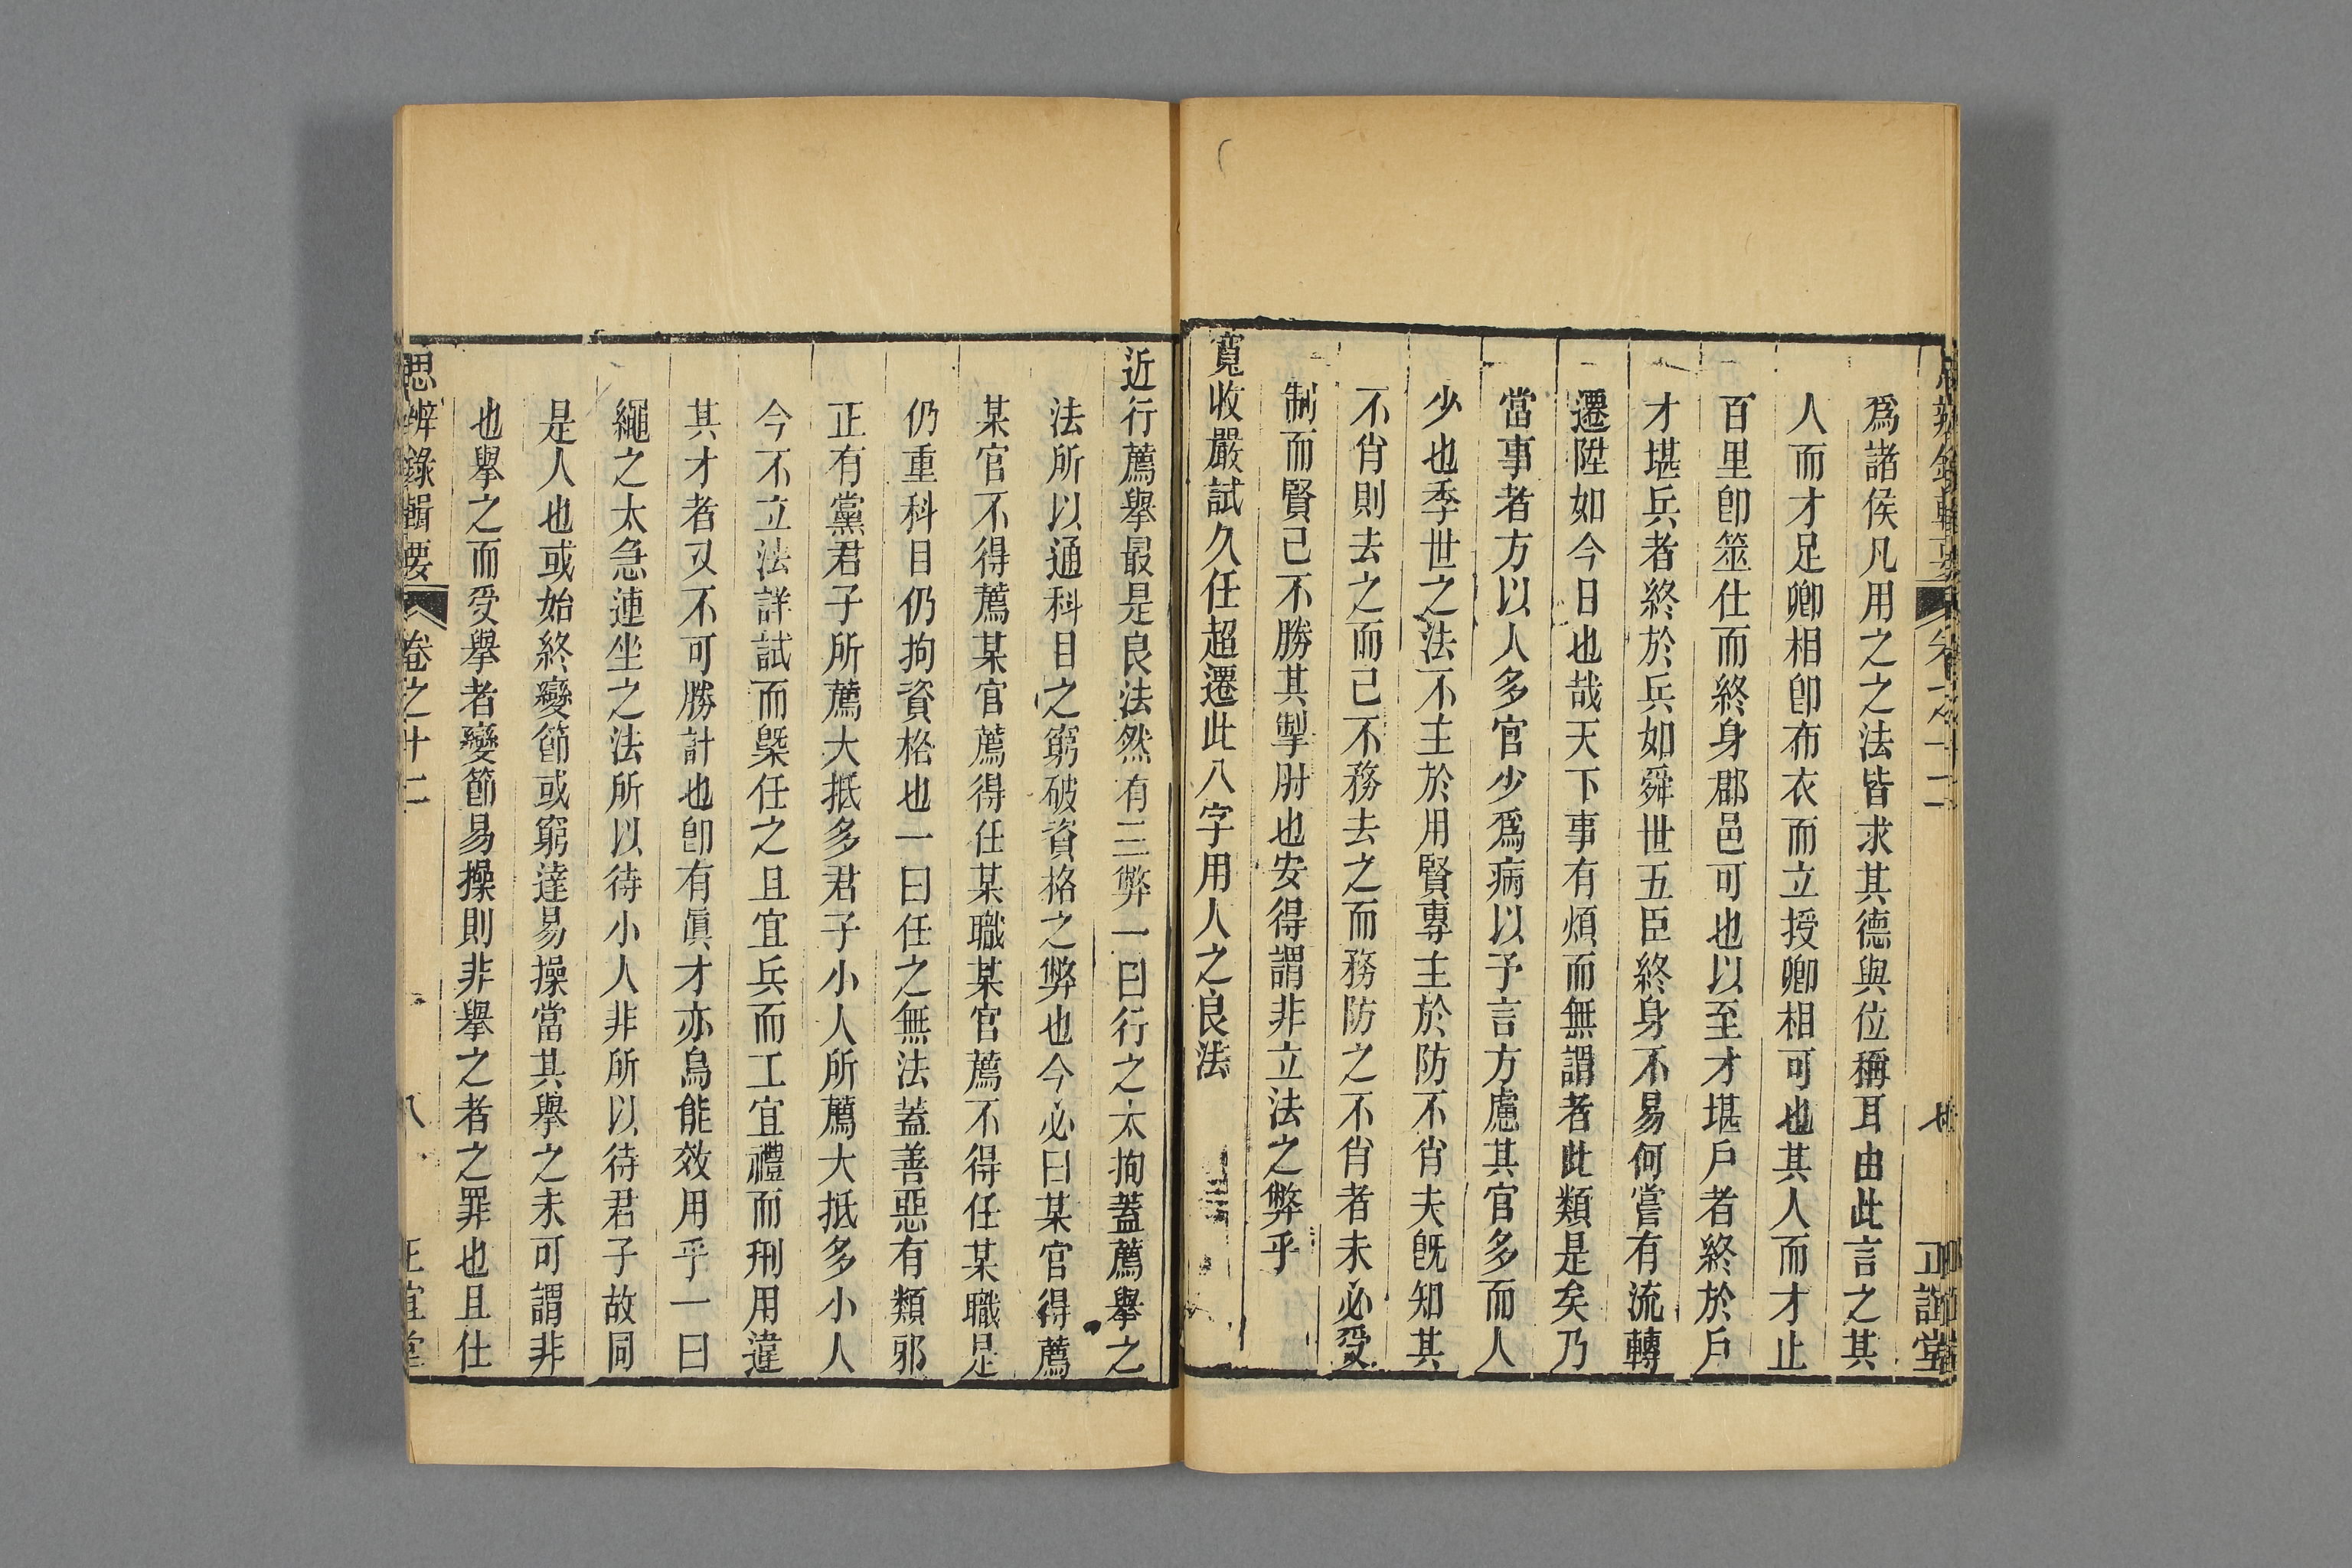 思辨錄輯要 卷之十二 七 正誼堂
爲諸侯凡用之之法皆求其德與位稱耳由此言之其
人而才足卿相卽布衣而立授卿相可也其人而才止
百里卽筮仕而終身郡邑可也以至才堪戶者終於戶
才堪兵者終於兵如舜世五臣終身不易何嘗有流轉
遷陞如今日也哉天下事有煩而無謂者此類是矣乃
當事者方以人多官少爲病以予言方慮其官多而人
少也季世之法不主於用賢專主於防不肖夫旣知其
不肖則去之而已不務去之而務防之不肖者未必受
制而賢已不勝其掣肘也安得謂非立法之弊乎
寬收嚴試久任超遷此八字用人之良法
近行薦舉最是良法然有三弊一曰行之太拘蓋薦舉之
法所以通科目之窮破資格之弊也今必曰某官得薦
某官不得薦某官薦得任某職某官薦不得任某職是
仍重科目仍拘資格也一曰任之無法蓋善惡有類邪
正有黨君子所薦大抵多君子小人所薦大抵多小人
今不立法詳試而槩任之且宜兵而工宜禮而刑用違
其才者又不可勝計也卽有眞才亦烏能效用乎一曰
繩之太急連坐之法所以待小人非所以待君子故同
是人也或始終變節或窮達易操當其舉之未可謂非
也舉之而受舉者變節易操則非舉之者之罪也且仕
思辨錄輯要 卷之十二 八 正誼堂